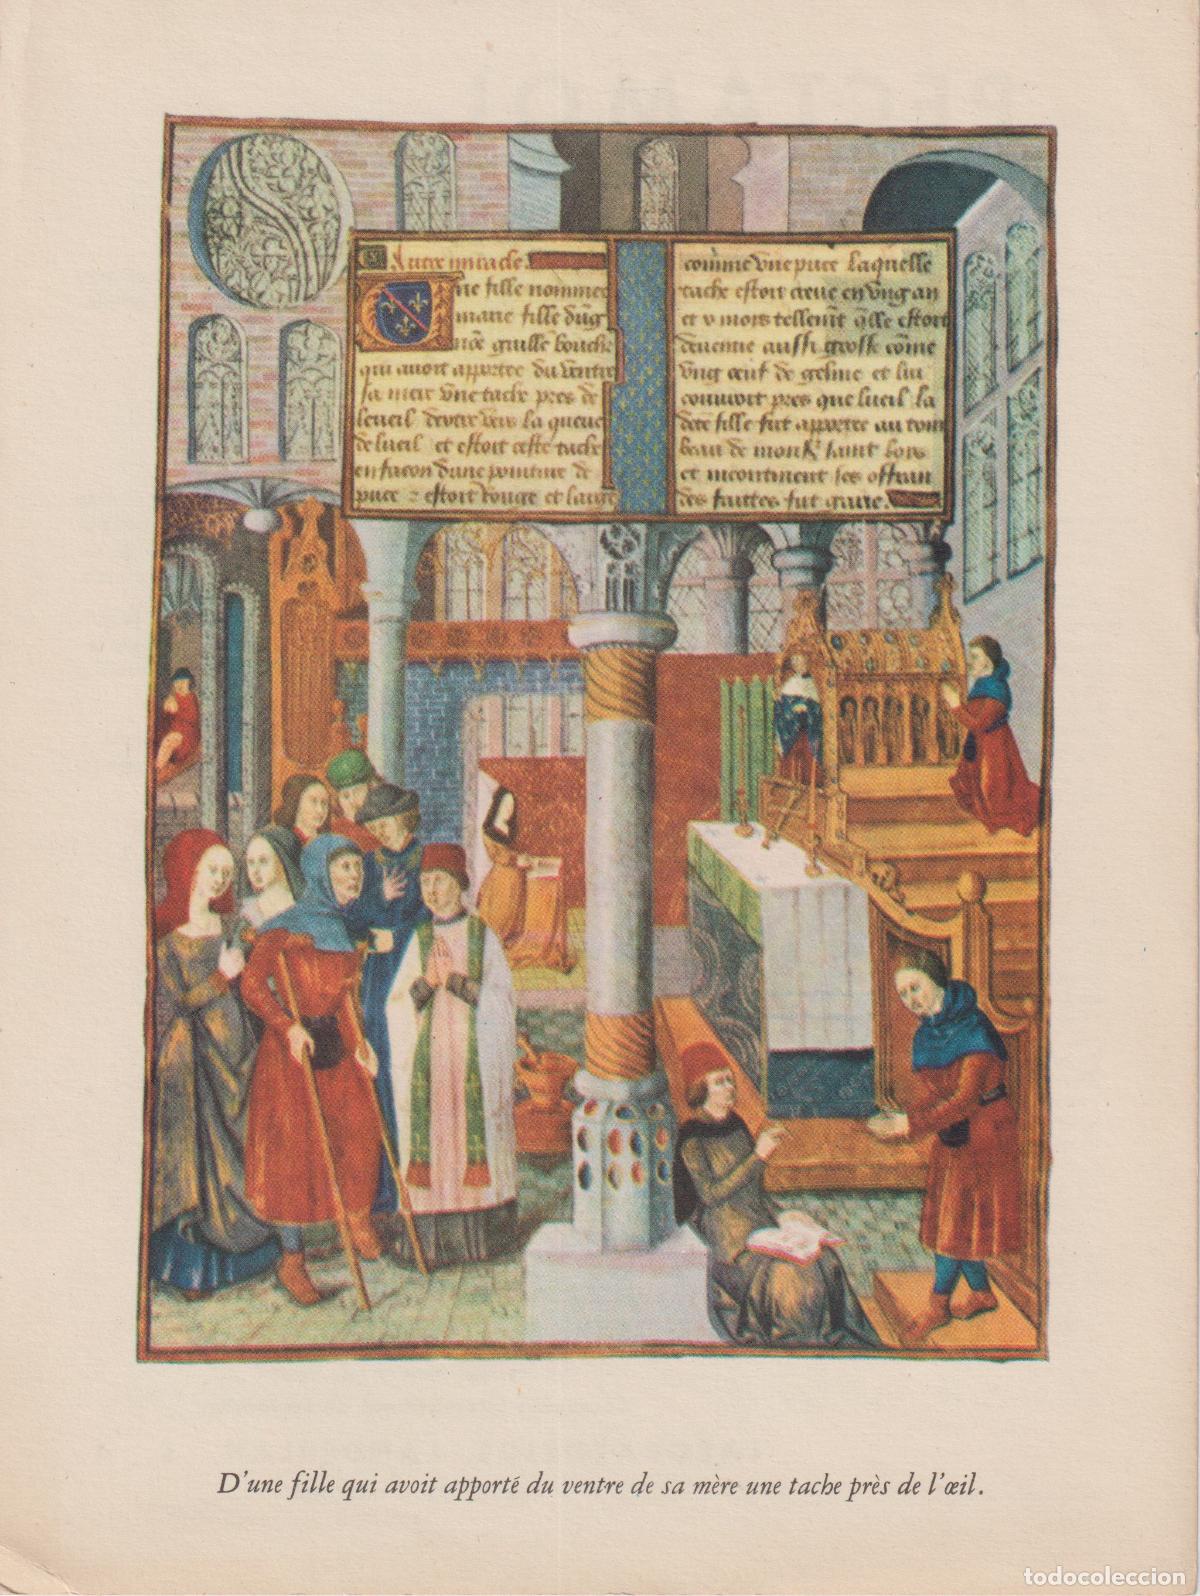 Autre miracle.
Une fille nommee
marie fille dug
no͠e guille bouche
qui avoit apporte du ventre
sa mere vne tache pres de
leueil deuere vers la queue
de lueil et estoit ceste tache
en facon dune pointure de
puce ⁊ estoit rouge et large
com̃me vne puce laquelle
tache estoit creue en vng an
et v mois tellem̃t q̃lle estoit
deuenue aussi grosse cõme
vng oeuf de geline et lui
couuroit pres que lueil la
dcẽ fille fut apportee au tom
beau de mons̃r saint loys
et incontinent ses offran
des faittes fut garie.
D'une fille qui avoit apporté du ventre de sa mère une tache près de l'œil.
todocoleccion